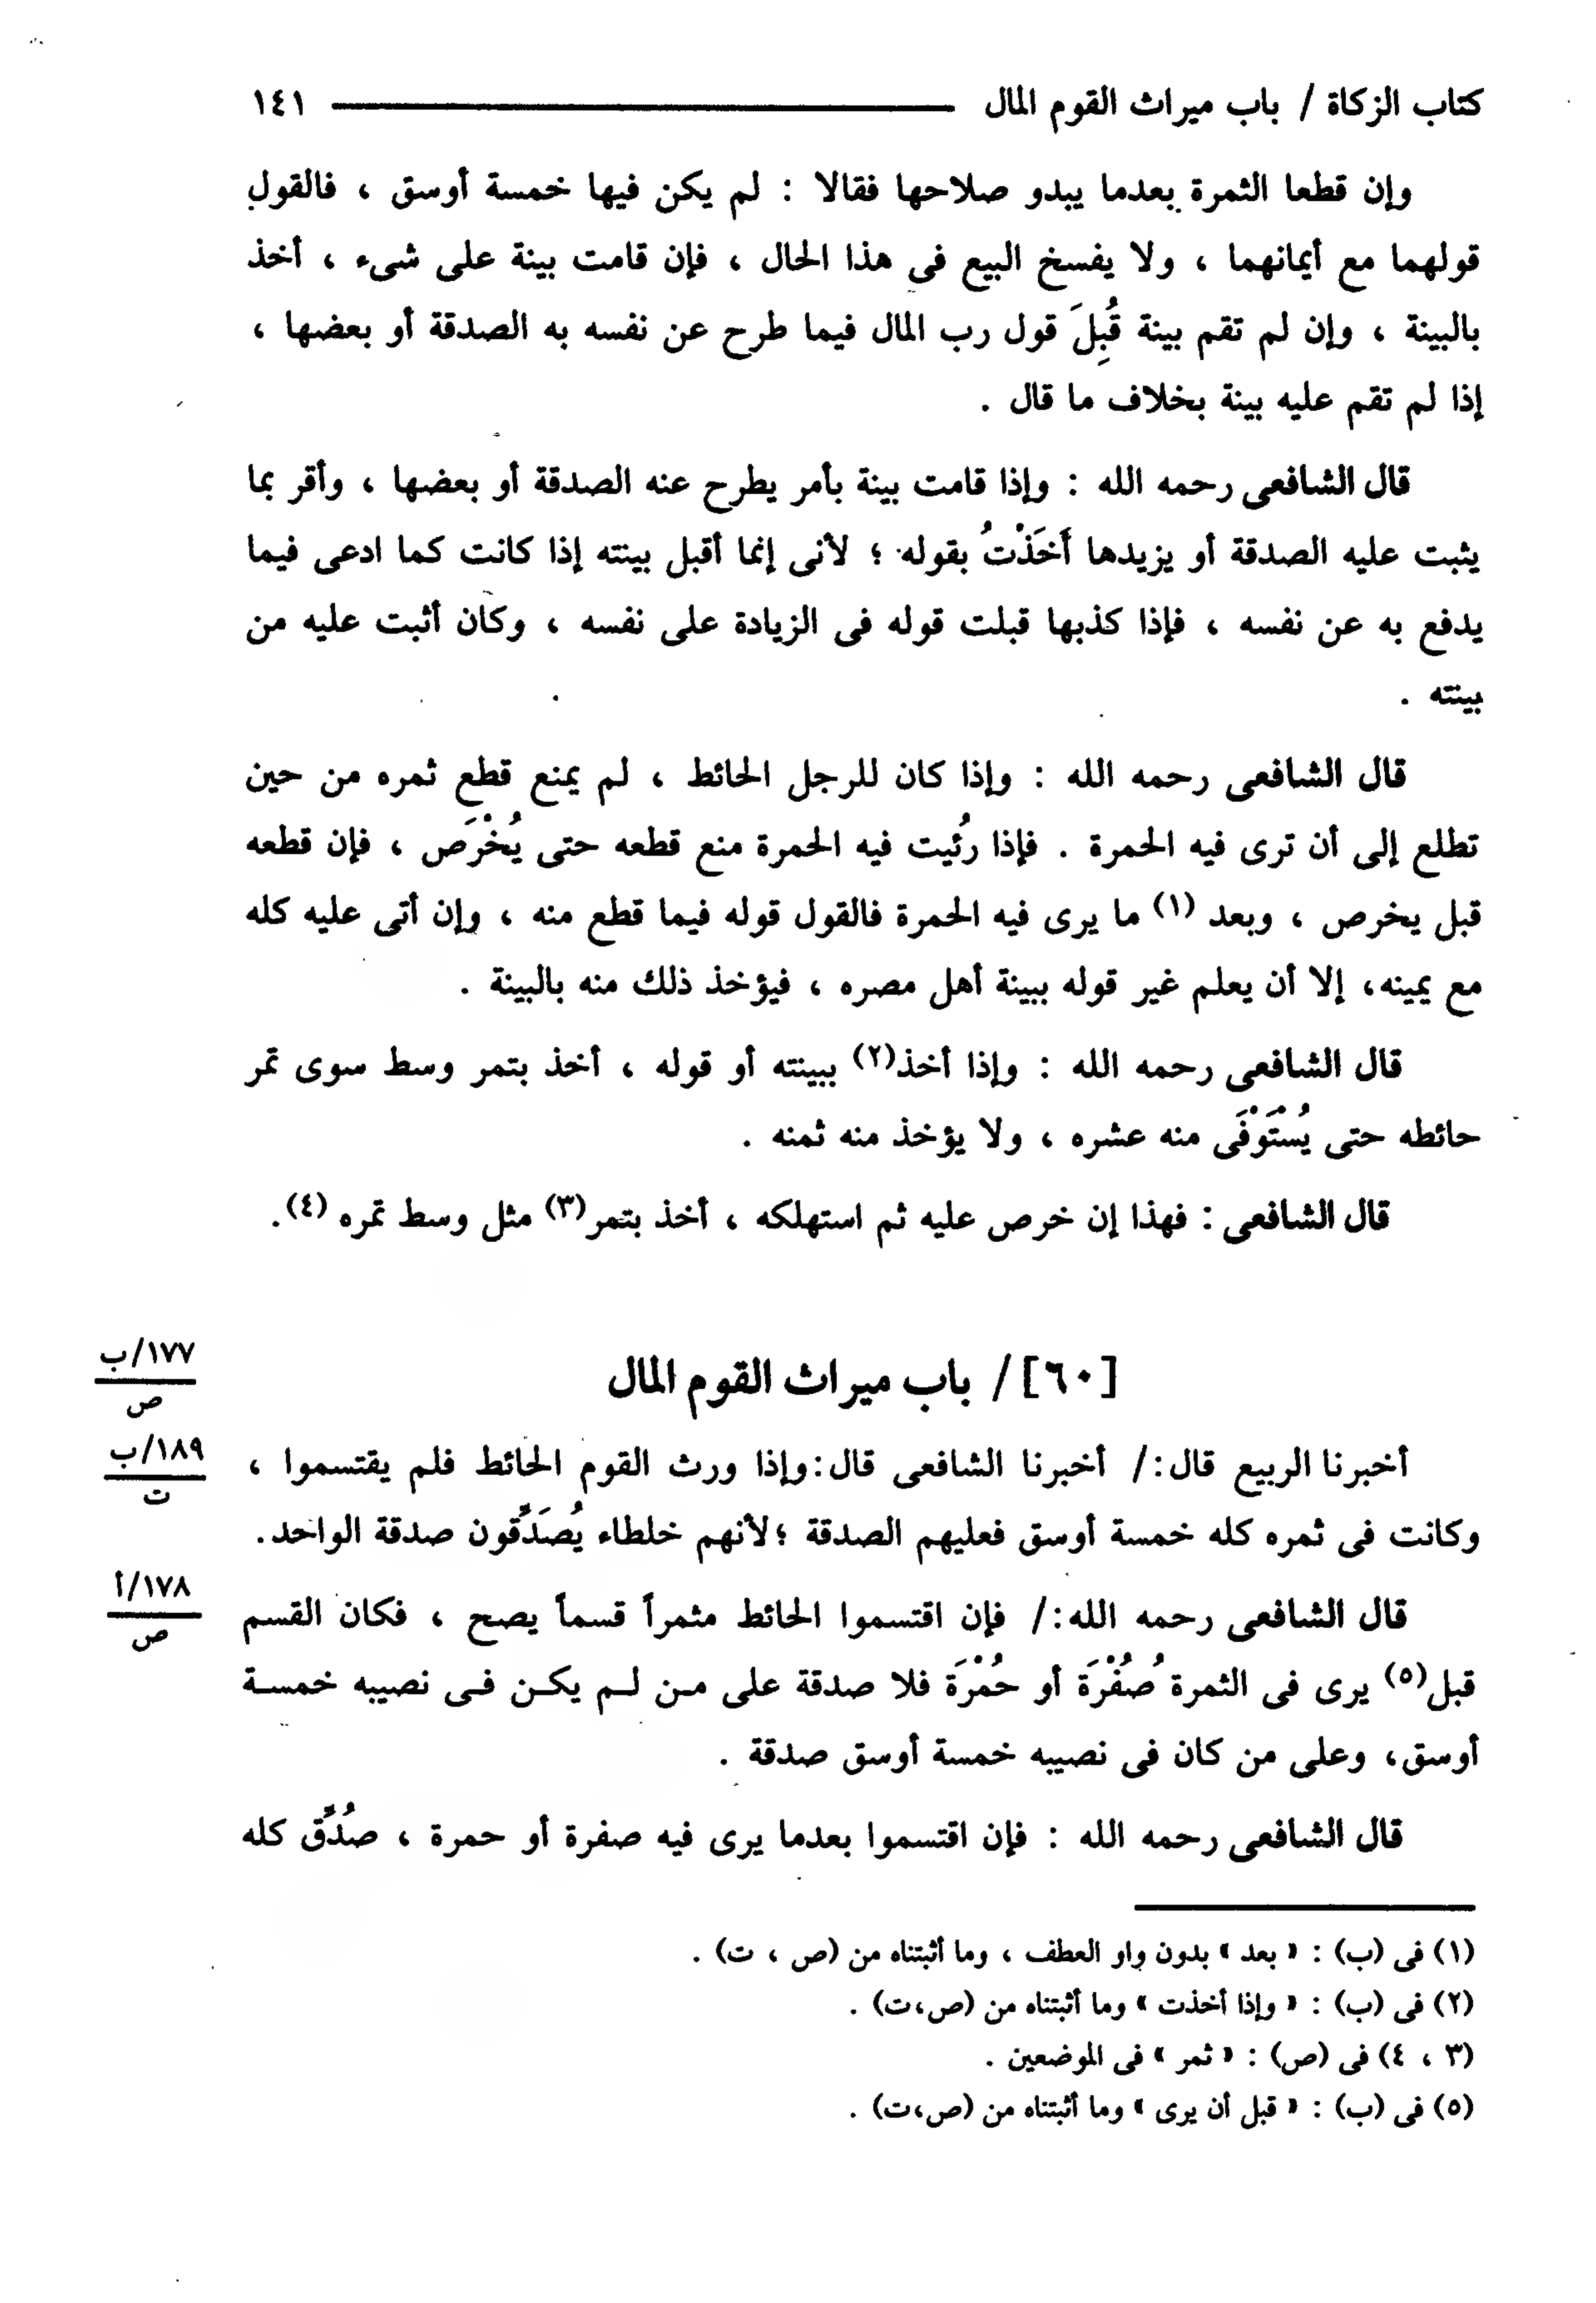 كتاب الزكاة / باب ميراث القوم المال ١٤١
وإن قطعا الثمرة بعدما يبدو صلاحها فقالا : لم يكن فيها خمسة أوسق ، فالقول
قولهما مع أيمانهما ، ولا يفسخ البيع فى هذا الحال ، فإن قامت بينة على شىء ، أخذ
بالبينة ، وإن لم تقم بينة قُبِلَ قول رب المال فيما طرح عن نفسه به الصدقة أو بعضها ،
إذا لم تقم عليه بينة بخلاف ما قال .
قال الشافعى رحمه الله : وإذا قامت بينة بأمر يطرح عنه الصدقة أو بعضها ، وأقر بما
يثبت عليه الصدقة أو يزيدها أَخَذْتُ بقوله ؛ لأنى إنما أقبل بينته إذا كانت كما ادعى فيما
يدفع به عن نفسه ، فإذا كذبها قبلت قوله فى الزيادة على نفسه ، وكان أثبت عليه من
بينته .
قال الشافعى رحمه الله : وإذا كان للرجل الحائط ، لم يمنع قطع ثمره من حين
تطلع إلى أن ترى فيه الحمرة . فإذا رُئيت فيه الحمرة منع قطعه حتى يُخْرَص ، فإن قطعه
قبل يخرص ، وبعد (١) ما يرى فيه الحمرة فالقول قوله فيما قطع منه ، وإن أتى عليه كله
مع يمينه، إلا أن يعلم غير قوله ببينة أهل مصره ، فيؤخذ ذلك منه بالبينة .
قال الشافعى رحمه الله : وإذا أخذ(٢) ببينته أو قوله ، أخذ بتمر وسط سوى تمر
حائطه حتى يُسْتَوْفَى منه عشره ، ولا يؤخذ منه ثمنه .
قال الشافعى : فهذا إن خرص عليه ثم استهلكه ، أخذ بتمر(٣) مثل وسط تمره (٤).
[٦٠] / باب ميراث القوم المال
١٧٧/ب
ص
أخبرنا الربيع قال:/ أخبرنا الشافعى قال:وإذا ورث القوم الحائط فلم يقتسموا ،
١٨٩/ب
ت
وكانت فى ثمره كله خمسة أوسق فعليهم الصدقة ؛لأنهم خلطاء يُصَدَّقون صدقة الواحد.
قال الشافعى رحمه الله:/ فإن اقتسموا الحائط مثمراً قسماً يصح ، فكان القسم
١٧٨/أ
ص
قبل(٥) يرى فى الثمرة صُفْرَة أو حُمْرَة فلا صدقة على من لم يكن فى نصيبه خمسة
أوسق، وعلى من كان فى نصيبه خمسة أوسق صدقة .
قال الشافعى رحمه الله : فإن اقتسموا بعدما يرى فيه صفرة أو حمرة ، صُدِّق كله
(١) فى (ب) : « بعد » بدون واو العطف ، وما أثبتناه من (ص ، ت) .
(٢) فى (ب) : « وإذا أخذت » وما أثبتناه من (ص،ت) .
(٣ ، ٤) فى (ص) : « ثمر » فى الموضعين .
(٥) فى (ب) : « قبل أن يرى » وما أثبتناه من (ص،ت) .